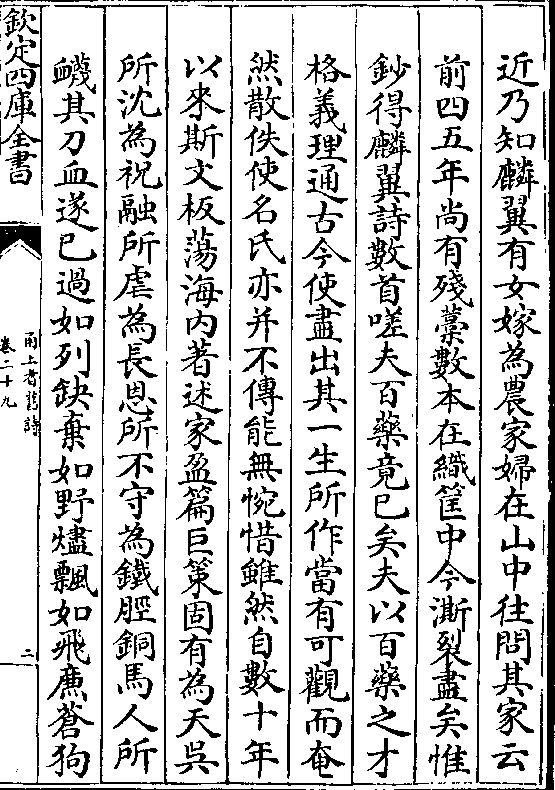 近乃知麟翼有女嫁為農家婦在山中往問其家云
前四五年尚有殘藁數本在織筐中今澌裂盡矣惟
鈔得麟翼詩數首嗟夫百藥竟已矣夫以百藥之才
格義理通古今使盡出其一生所作當有可觀而奄
然散佚使名氏亦并不傳能無惋惜雖然自數十年
以來斯文板蕩海内著述家盈篇巨策固有為天吳
所沈為祝融所虐為長恩所不守為鐵脛銅馬人所
衊其刀血遂已過如列缺棄如野爐飄如飛廉蒼狗
欽定四庫全書
甬上耆舊詩
卷二十九
二